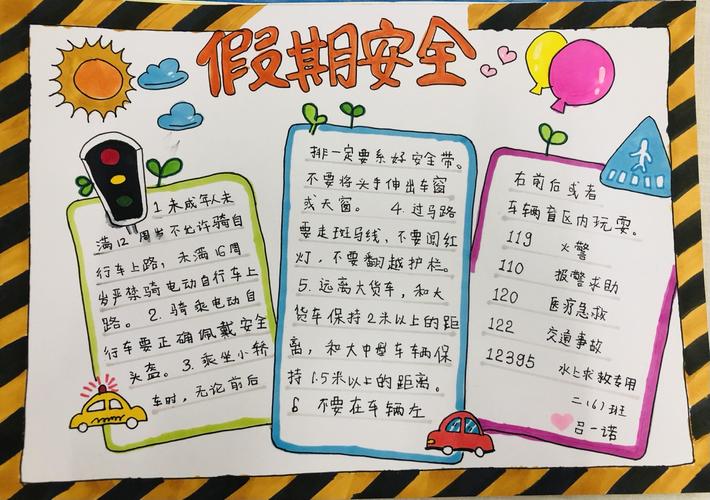 假期安全
1 未成年人未
满12周岁不允许骑自
行车上路，未满16周
岁严禁骑电动自行车上
路。2. 骑乘电动自
行车要正确佩戴安全
头盔。3. 乘坐小轿
车时，无论前后
排一定要系好安全带。
不要将头手伸出车窗
或天窗。 4. 过马路
要走斑马线，不要闯红
灯，不要翻越护栏。
5. 远离大货车，和大
货车保持2米以上的距
离，和大中型车车辆保
持1.5米以上的距离。
6 不要在车辆左
右前后或者
车辆盲区内玩耍。
119 火警
110 报警求助
120 医疗急救
122 交通事故
12395 水上求救专用
二(6)班
吕一诺